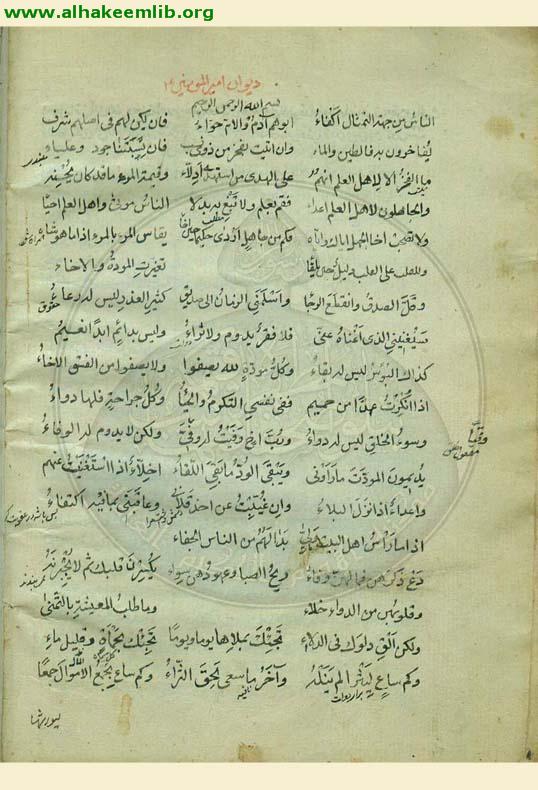 www.alhakeemlib.org
ديوان امير المومنين ع
بسم الله الرحمن الرحيم
الناس من جهة التمثال اكفاء ابوهم آدم والام حواء فان يكن لهم في اصلهم شرف
يفاخرون به فالطين والماء وان اتيت بفخر من ذوي نسب فان نسبتنا جود وعلياء
ما الفخر الا لاهل العلم انهم على الهدى من استهدى ادلاء وقيمة المرء ما قد كان يحسنه
والجاهلون لاهل العلم اعداء فقم بعلم ولا تبغ به بدلا الناس موتى واهل العلم احياء
ولا تصحب اخا الجهل اياك واياه فكم من جاهل اردى حكيما حين آخاه يقاس المرء بالمرء اذا ما هو ماشاه
وللقلب على القلب دليل حين يلقاه تغيرت المودة والاخاء
وقل الصدق وانقطع الرجا واسلمني الزمان الى صديق كثير الغدر ليس له رعاء
سيغنيني الذي اغناه عني فلا فقر يدوم ولا ثراء وليس بدائم ابدا نعيم
كذاك البؤس ليس له بقاء وكل مودة لله يصفوا ولا يصفوا من الفسق الاخاء
اذا انكرت عهدا من حميم ففي نفسي التكرم والحياء وكل جراحة فلها دواء
وسوء الخلق ليس له دواء ورب اخ وفيت له وفي ولكن لا يدوم له الوفاء
يديمون المودة ما راوني ويبقى الود ما بقي اللقاء اخلاء اذا استغنيت عنهم
واعداء اذا نزل البلاء وان غيبت عن احد قلاني وعاقبني بما فيه اكتفاء
اذا ما راس اهل البيت ولى بدا لهم من الناس الجفاء
دع ذكرهن فما لهن وفاء ريح الصبا وعهودهن سواء يكسرن قلبك ثم لا يجبرنه
وقلوبهن من الدواء خلاء وما طلب المعيشة بالتمني
ولكن الق دلوك في الدلاء تجئك بملاها يوما ويوما تجئك بحمأة وقليل ماء
وكم ساع ليثر لم ينله وآخر ما سعى لحق الثراء وكم ساع يجمع الاموال جمعا
ليورثها